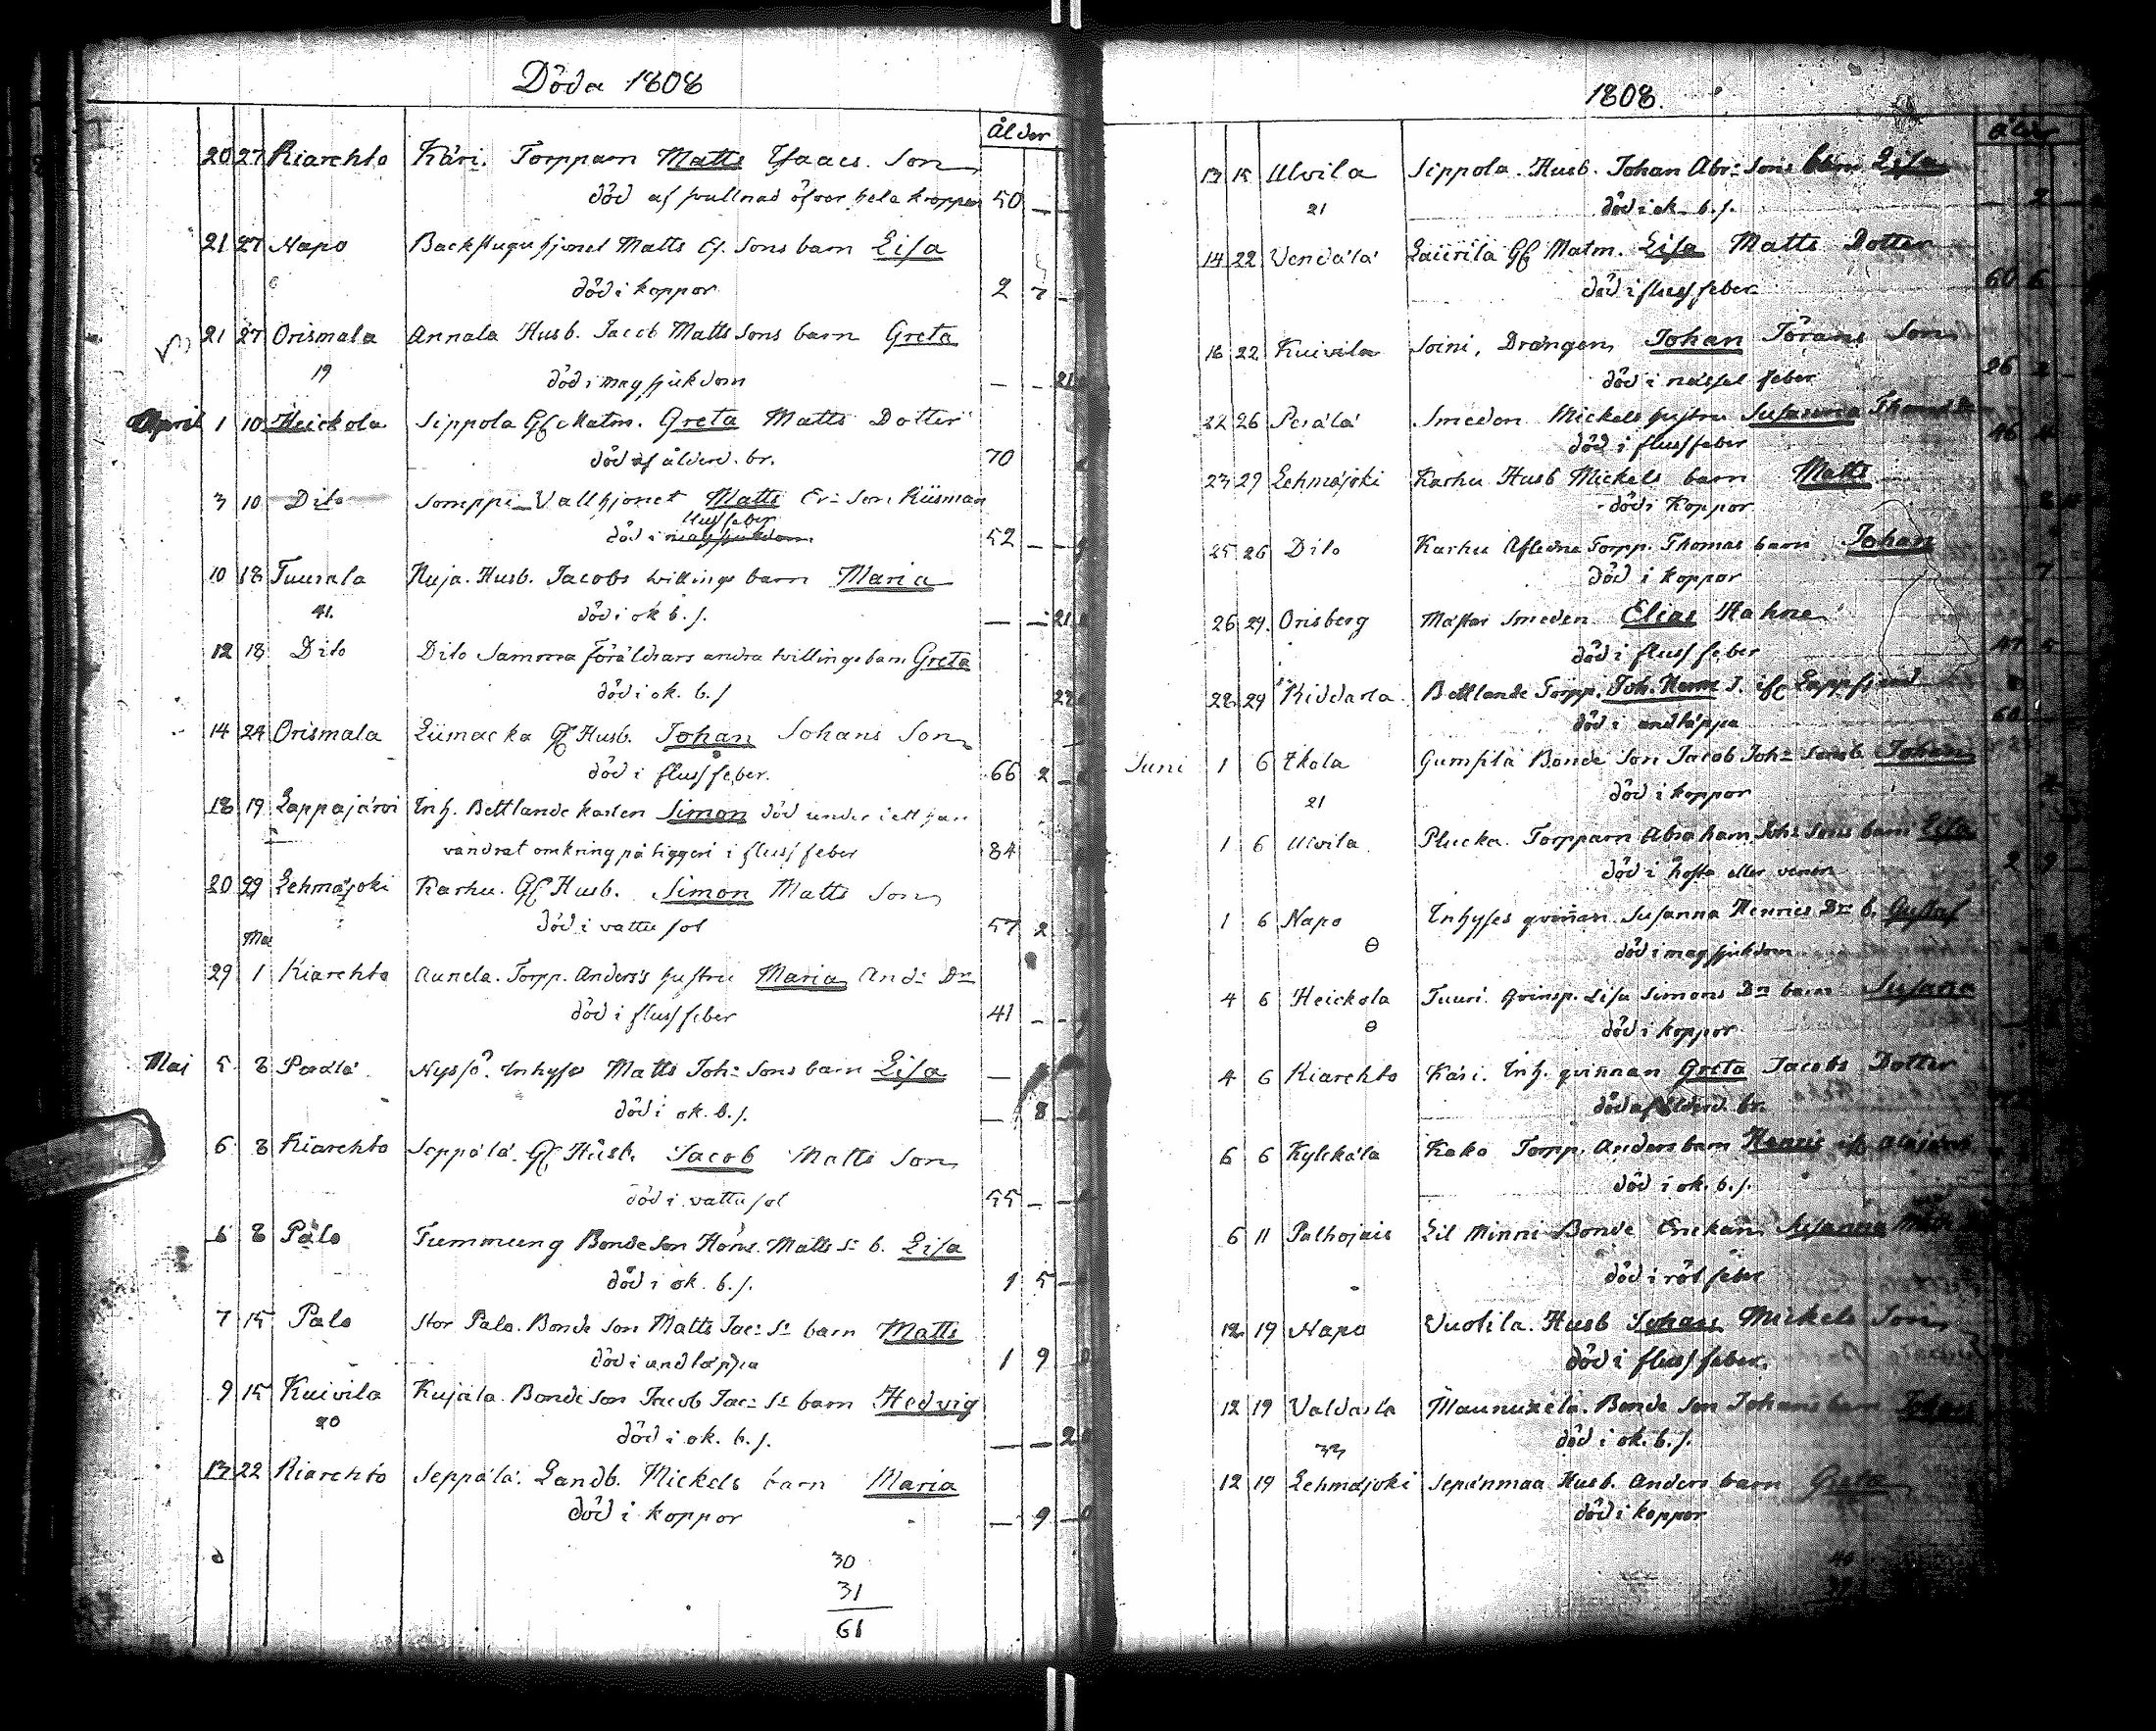 Döda 1808
Ålder
20 27 Kiarehto Kåri. Torpparn Matts Isaacs Son
död af svullnad öfver hela kroppen 50 — —
21 27 Napo Backstuguhjonet Matts Sons barn Lisa
död i koppor 2 7 —
21 27 Orismala Annala Husb. Jacob Matts Sons barn Greta
19 död i magsjukdom — — 21
April 1 10 Heickola Sippola Gf Matm. Greta Matts Dotter
död af ålderd. br. 70
3 10 Dito Soneppi Vallhjonet Matts Er: Son Kiisman
flussfeber
död i magsjukdom 52 — —
10 18 Tuurala Kuja. Husb. Jacobs tvillings barn Maria
41. död i ok b. s. — — 21
12 18 Dito Dito Samma föräldrars andra tvillingsbarn Greta
död i ok. b. s. 23
14 24 Orismala Liimacka Gf Husb. Johan Johans Son
död i flussfeber. 66 2 —
18 19 Lappajärvi Inh. Bettlande karlen Simon död under
vandrat omkring på tiggeri i flussfeber 84
20 29 Lehmäjoki Karhu. Gf Husb. Simon Matts Son
död i vattusot 57 2
Mai
29 1 Kiarehto Aunela. Torp. Anders's hustru Maria And: Dr
död i flussfeber 41 — —
Maj 5 8 Perälä Nyssö. Inhyses Matts Joh: Sons barn Lisa —
död i ok. b. s. — 8 —
6 8 Kiarehto Seppälä. Gf Husb. Jacob Matts Son
död i vattusot 55 — —
6 8 Palo Tummung Bonde Son Hans Matts S: b. Lisa
död i ok. b. s. 1 5 —
7 15 Palo Stor Palo. Bonde Son Matts Jac: S: barn Matts
död i andtäppa 1 9
9 15 Kuivila Kujala. Bonde Son Jacob Jac: S: barn Hedvig
20 död i ok. b. s. — — 2
13 22 Kiarehto Seppälä. Landb. Mickels barn Maria
död i koppor — 9 —
30
31
61
1808.
Ålder
13 15 Ulvila Sippola. Husb. Johan Abr: Sons barn Lisa
21 död i ok. b. s. — 2
14 22 Vendälä Laurila Gf Matm. Lisa Matts Dotter
död i flussfeber 60 6
16 22 Kuivila Soini, Drängen Johan Görans Son
död i nässelfeber 26 2 —
22 26 Perälä Smeden Mickels hustru Susanna
död i flussfeber 46
23 29 Lehmäjoki Karhu Husb Mickels barn Matts
död i koppor
25 26 Dito Karhu Afledne Torp. Thomas barn Johan
död i koppor 7
26 29 Orisberg Mästersmeden Elias Hahne
död i flussfeber 47 5
28 29 Kiddarla Bettlande Torp.
död i andtäppa 60
Juni 1 6 Ikola Gumsila Bonde Son Jacob Joh: Sons b. Johan
21 död i koppor
1 6 Ulvila Plucka Torpparn Abraham Joh: Sons barn Lisa
död i hosta eller 2 9
1 6 Napo Inhyses qvinnan Susanna Henrics Dr b. Gustaf
död i magsjukdom
4 6 Heickola Tuuri. Qvinsp. Lisa Simons Dr barn Susana
död i koppor
4 6 Kiarehto Kåri. Inh. qvinnan Greta Jacobs Dotter
död af ålderd. br.
6 6 Kylkälä Kako Torp. Anders barn Henric
död i ok. b. s.
6 11 Palhojais Lil Minni Bonde Enckan Susanna
död i rötfeber
12 19 Napo Vuotila. Husb Johan Mickels Son
död i flussfeber.
12 19 Valdarla Maunuxela. Bonde Son Johans barn Johan
33 död i ok. b. s.
12 19 Lehmäjoki Sepänmaa Husb. Anders barn Greta
död i koppor